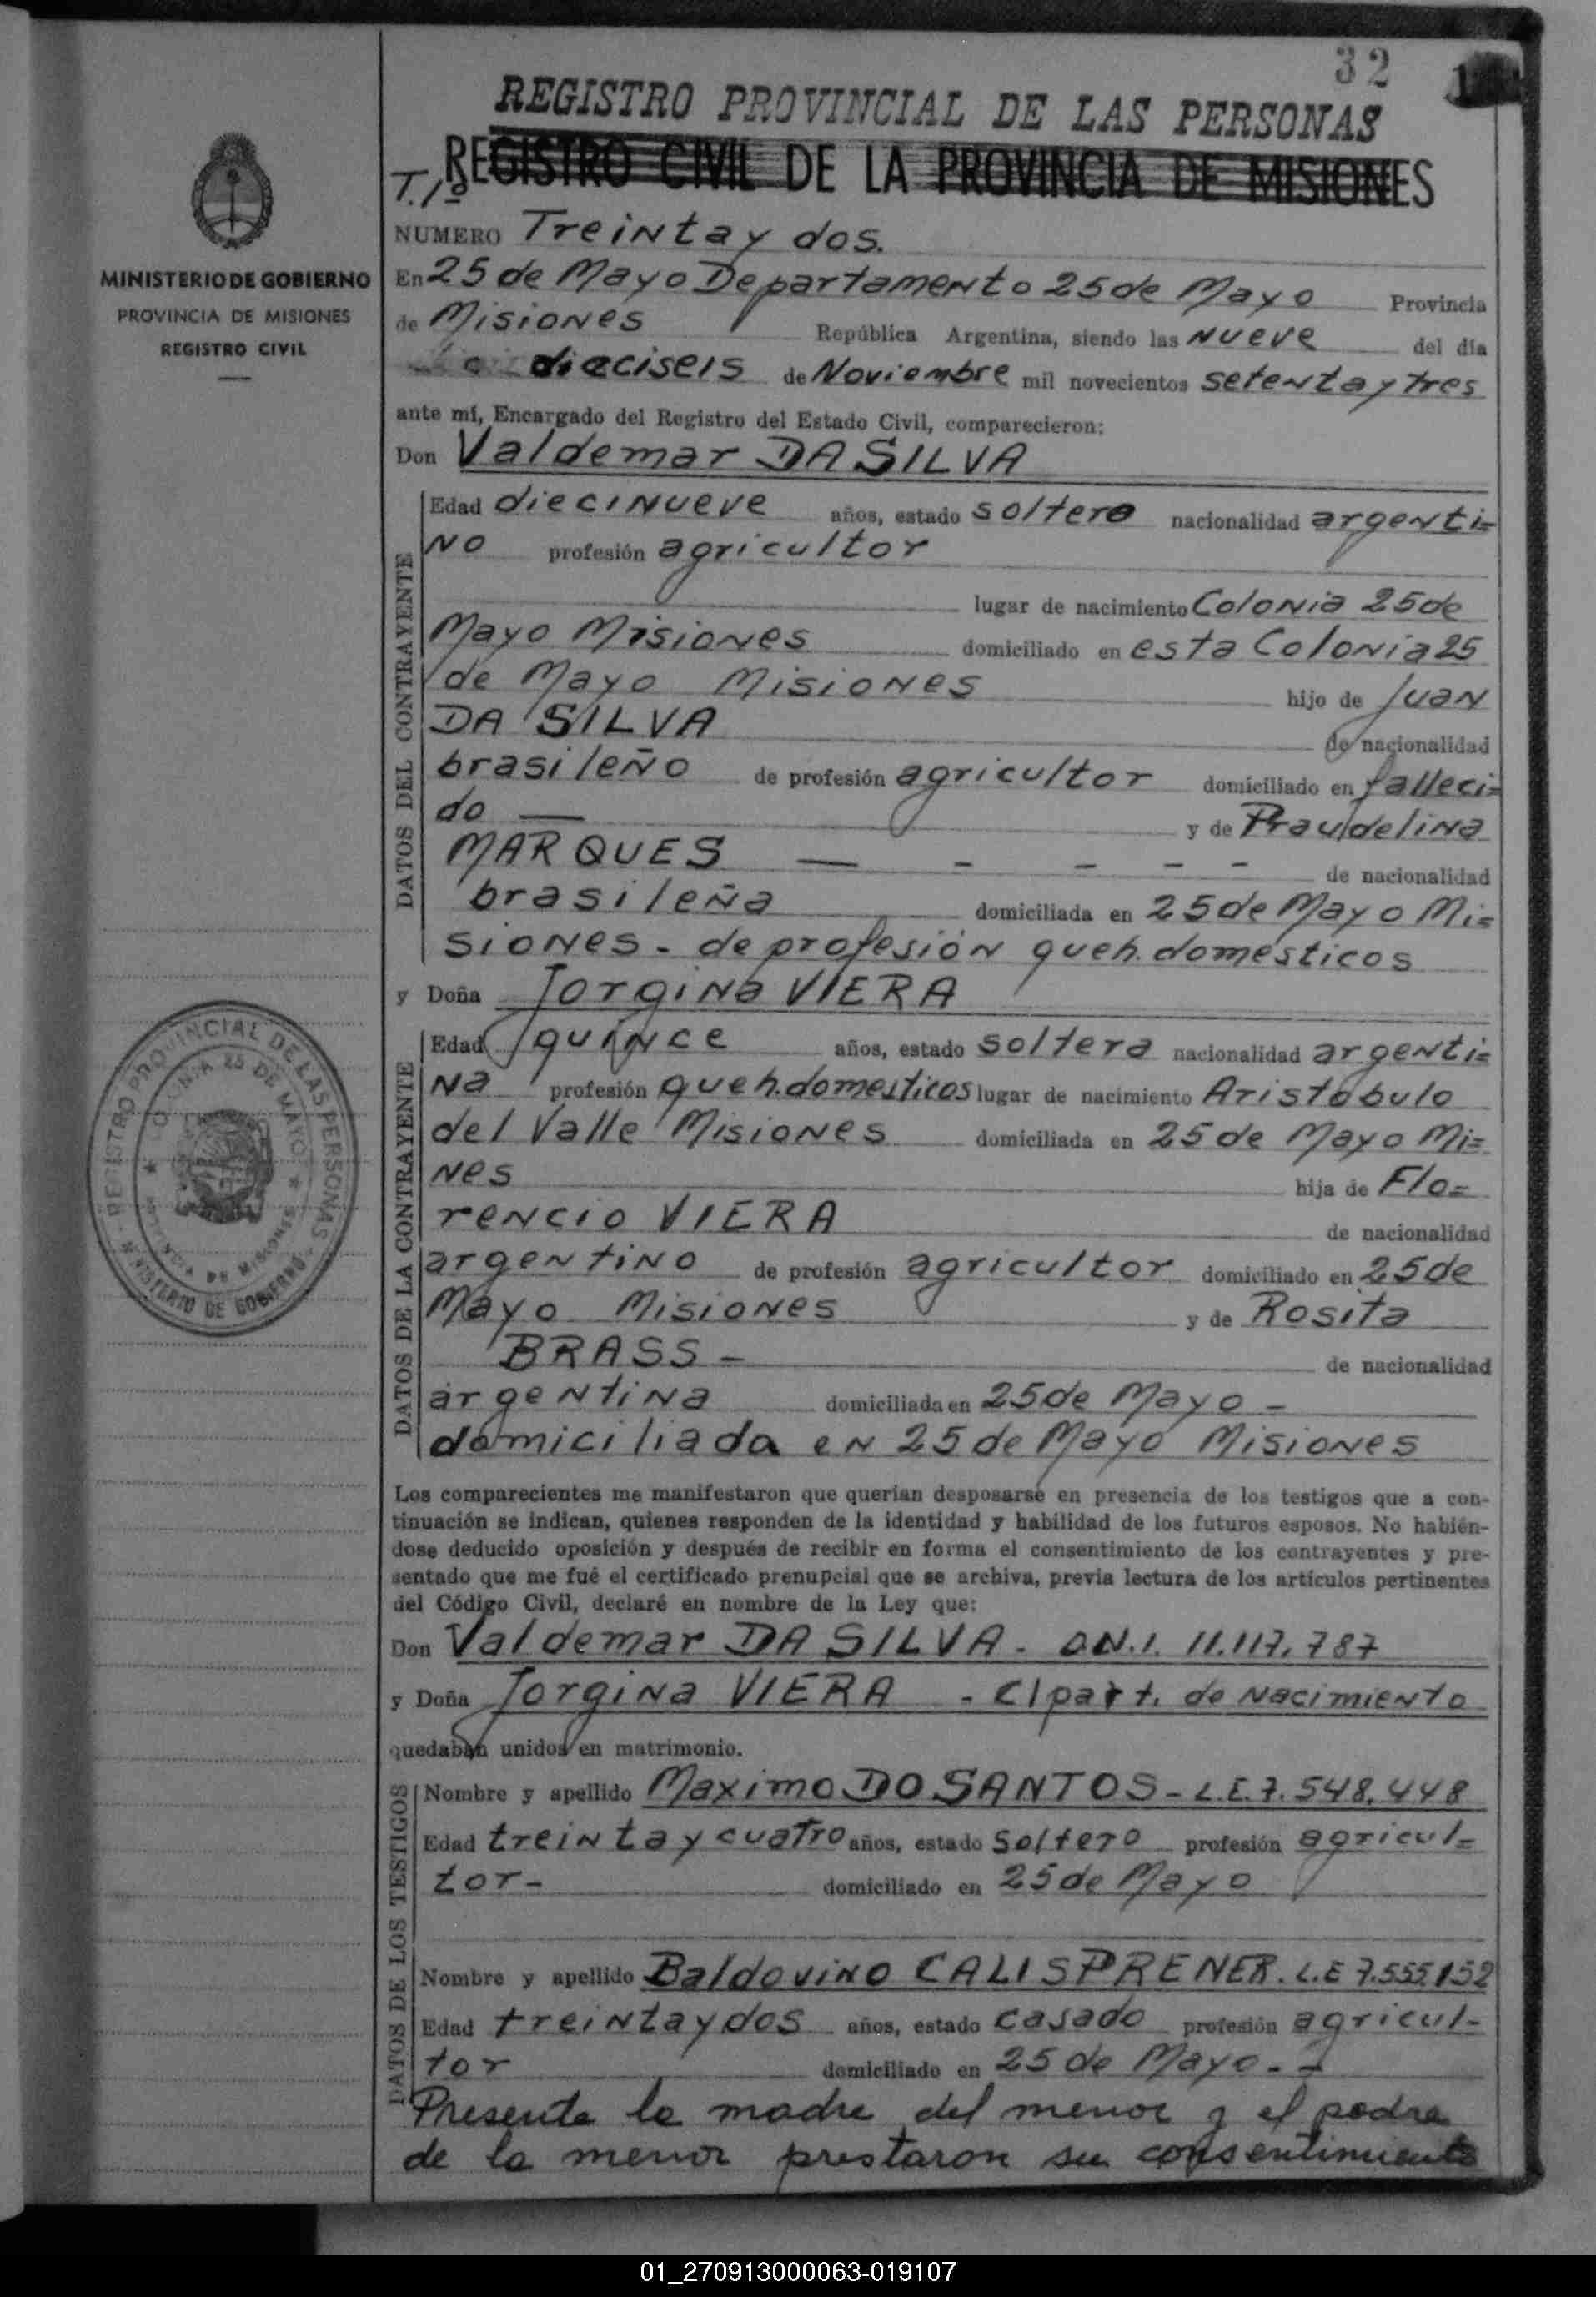 32
REGISTRO PROVINCIAL DE LAS PERSONAS
REGISTRO CIVIL DE LA PROVINCIA DE MISIONES
T.1º
MINISTERIO DE GOBIERNO
PROVINCIA DE MISIONES
REGISTRO CIVIL
NUMERO Treinta y dos.
En 25 de Mayo Departamento 25 de Mayo Provincia
de Misiones República Argentina, siendo las Nueve del día
dieciseis de Noviembre mil novecientos setenta y tres
ante mí, Encargado del Registro del Estado Civil, comparecieron:
Don Valdemar DA SILVA
DATOS DEL CONTRAYENTE
Edad diecinueve años, estado soltero nacionalidad argenti=
no profesión agricultor
lugar de nacimiento Colonia 25 de
Mayo Misiones domiciliado en esta Colonia 25
de Mayo Misiones hijo de Juan
DA SILVA de nacionalidad
brasileño de profesión agricultor domiciliado en falleci=
do — y de Fraudelina
MARQUES — - - - - de nacionalidad
brasileña domiciliada en 25 de Mayo Mi=
siones - de profesión queh. domésticos
y Doña Jorgina VIERA
DATOS DE LA CONTRAYENTE
Edad quince años, estado soltera nacionalidad argenti=
na profesión queh. domesticos lugar de nacimiento Aristóbulo
del Valle Misiones domiciliada en 25 de Mayo Mi=
nes hija de Flo=
rencio VIERA de nacionalidad
argentino de profesión agricultor domiciliado en 25 de
Mayo Misiones y de Rosita
BRASS - de nacionalidad
argentina domiciliada en 25 de Mayo -
domiciliada en 25 de Mayo Misiones
Los comparecientes me manifestaron que querían desposarse en presencia de los testigos que a con-
tinuación se indican, quienes responden de la identidad y habilidad de los futuros esposos. No habién-
dose deducido oposición y después de recibir en forma el consentimiento de los contrayentes y pre-
sentado que me fué el certificado prenupcial que se archiva, previa lectura de los artículos pertinentes
del Código Civil, declaré en nombre de la Ley que:
Don Valdemar DA SILVA - D.N.I. 11.117.787
y Doña Jorgina VIERA - C/part. de nacimiento
quedaban unidos en matrimonio.
DATOS DE LOS TESTIGOS
Nombre y apellido Maximo DO SANTOS - L.E. 7.548.448
Edad treinta y cuatro años, estado soltero profesión agricul=
tor - domiciliado en 25 de Mayo
Nombre y apellido Baldovino CALISPRENER. L.E 7.555.152
Edad treinta y dos años, estado casado profesión agricul-
tor domiciliado en 25 de Mayo - -
Presente la madre del menor y el padre
de la menor prestaron su consentimiento
REGISTRO PROVINCIAL DE LAS PERSONAS
MINISTERIO DE GOBIERNO
COLONIA 25 DE MAYO
PROVINCIA DE MISIONES
01_270913000063-019107